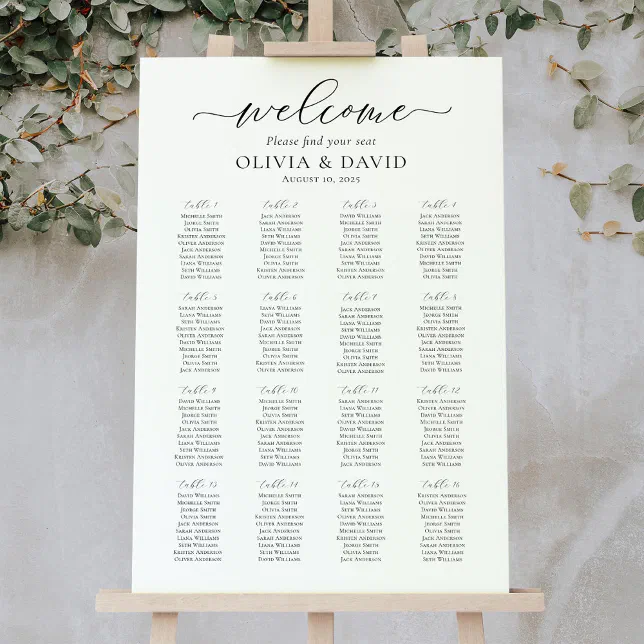 welcome
Please find your seat
OLIVIA & DAVID
August 10, 2025
table 1
Michelle Smith
Jeorge Smith
Olivia Smith
Kristen Anderson
Oliver Anderson
Jack Anderson
Sarah Anderson
Liana Williams
Seth Williams
David Williams
table 2
Jack Anderson
Sarah Anderson
Liana Williams
Seth Williams
David Williams
Michelle Smith
Jeorge Smith
Olivia Smith
Kristen Anderson
Oliver Anderson
table 3
David Williams
Michelle Smith
Jeorge Smith
Olivia Smith
Jack Anderson
Sarah Anderson
Liana Williams
Seth Williams
Kristen Anderson
Oliver Anderson
table 4
Jack Anderson
Sarah Anderson
Liana Williams
Seth Williams
Kristen Anderson
Oliver Anderson
David Williams
Michelle Smith
Jeorge Smith
Olivia Smith
table 5
Sarah Anderson
Liana Williams
Seth Williams
Kristen Anderson
Oliver Anderson
David Williams
Michelle Smith
Jeorge Smith
Olivia Smith
Jack Anderson
table 6
Liana Williams
Seth Williams
David Williams
Michelle Smith
Jeorge Smith
Olivia Smith
Jack Anderson
Sarah Anderson
Kristen Anderson
Oliver Anderson
table 7
Jack Anderson
Sarah Anderson
Liana Williams
Seth Williams
David Williams
Michelle Smith
Jeorge Smith
Olivia Smith
Kristen Anderson
Oliver Anderson
table 8
Sarah Anderson
Liana Williams
Seth Williams
Kristen Anderson
Oliver Anderson
Michelle Smith
Jeorge Smith
Olivia Smith
Jack Anderson
David Williams
table 9
David Williams
Michelle Smith
Jeorge Smith
Olivia Smith
Jack Anderson
Sarah Anderson
Liana Williams
Seth Williams
Kristen Anderson
Oliver Anderson
table 10
Michelle Smith
Jeorge Smith
Olivia Smith
Kristen Anderson
Oliver Anderson
Jack Anderson
Sarah Anderson
Liana Williams
Seth Williams
David Williams
table 11
Sarah Anderson
Liana Williams
Seth Williams
Kristen Anderson
Oliver Anderson
Michelle Smith
David Williams
Jeorge Smith
Olivia Smith
Jack Anderson
table 12
Kristen Anderson
Oliver Anderson
David Williams
Michelle Smith
Jeorge Smith
Olivia Smith
Jack Anderson
Sarah Anderson
Liana Williams
Seth Williams
table 13
David Williams
Michelle Smith
Jeorge Smith
Olivia Smith
Jack Anderson
Sarah Anderson
Liana Williams
Seth Williams
Kristen Anderson
Oliver Anderson
table 14
Michelle Smith
Jeorge Smith
Olivia Smith
Kristen Anderson
Oliver Anderson
Jack Anderson
Sarah Anderson
Liana Williams
David Williams
Seth Williams
table 15
Sarah Anderson
Liana Williams
Seth Williams
Oliver Anderson
David Williams
Michelle Smith
Kristen Anderson
Jeorge Smith
Olivia Smith
Jack Anderson
table 16
Kristen Anderson
Oliver Anderson
David Williams
Michelle Smith
Jeorge Smith
Olivia Smith
Jack Anderson
Sarah Anderson
Liana Williams
Seth Williams